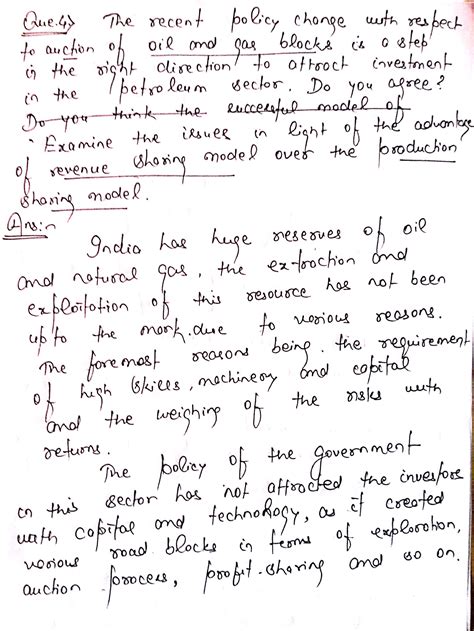 Que.4) The recent policy change with respect
to auction of oil and gas blocks is a step
in the right direction to attract investment
in the petroleum sector. Do you agree?
Do you think the successful model of
Examine the issues in light of the advantage
of revenue sharing model over the production
sharing model.
Ans:-
India has huge reserves of oil
and natural gas, the extraction and
exploitation of this resource has not been
upto the mark due to various reasons.
The foremost reasons being the requirement
of high skills, machinery and capital
and the weighing of the risks with
returns.
The policy of the government
in this sector has not attracted the investors
with capital and technology, as it created
various road blocks in terms of exploration,
auction process, profit-sharing and so on.